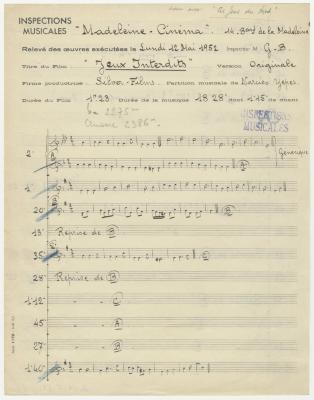 INSPECTIONS
MUSICALES
"Madeleine - Cinema". 14 Bard de la Madeleine
Relevé des œuvres exécutées le Lundi 12 Mai 1952 Inspecté M G.B.
Titre du Film "Jeux Interdits" Version Originale
Firme productrice Silver-Films. Partition musicale de Narciso Yepes.
Durée du Film 1h28' Durée de la musique 18'28" dont 1'45 de chant
INSPECTIONS
MUSICALES
2'
Générique
A
1'
B
20"
A
13" Reprise de B
35" C
28" Reprise de B
1'12 - - C
45" - - A
27" - - B
1'40"